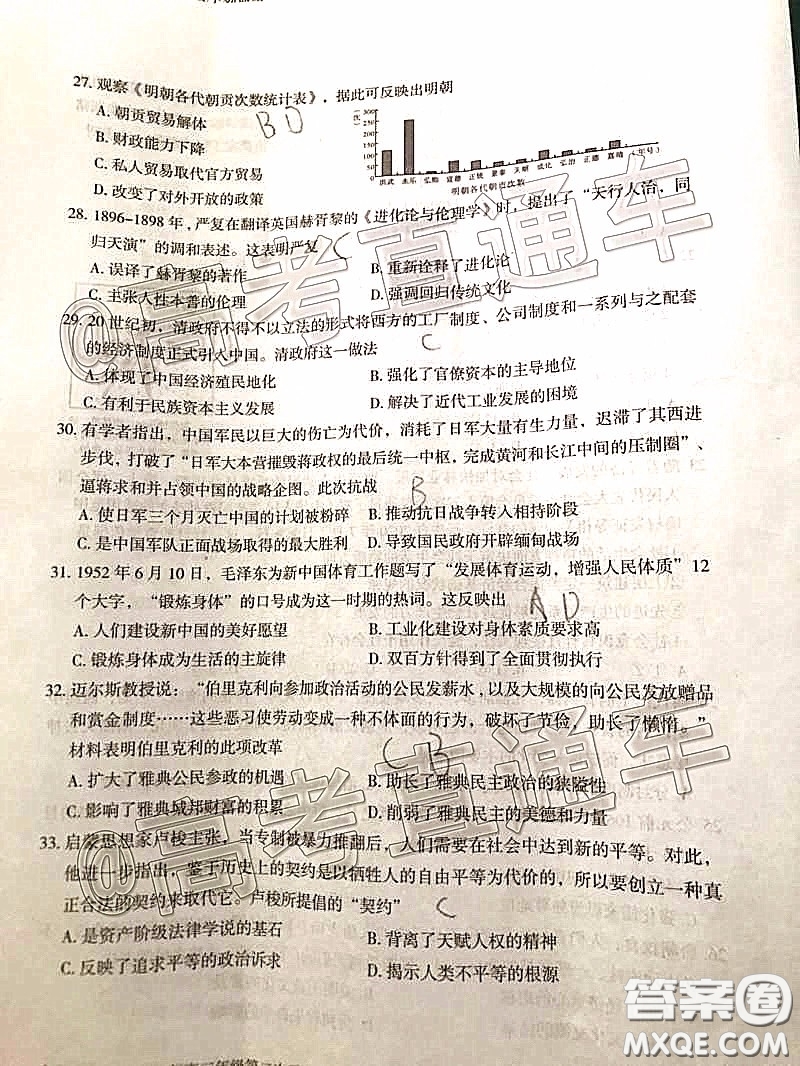 27. 观察《明朝各代朝贡次数统计表》，据此可反映出明朝
A. 朝贡贸易解体
B. 财政能力下降
C. 私人贸易取代官方贸易
D. 改变了对外开放的政策
B D
(次)
300
250
200
150
100
50
0
洪武 永乐 弘熙 宣德 正统 景泰 天顺 成化 弘治 正德 嘉靖 (年号)
明朝各代朝贡次数
28. 1896-1898 年，严复在翻译英国赫胥黎的《进化论与伦理学》时，提出了“天行人治，同
归天演”的调和表述。这表明严复
A. 误译了赫胥黎的著作 B. 重新诠释了进化论
C. 主张人性本善的伦理 D. 强调回归传统文化
29. 20 世纪初，清政府不得不以立法的形式将西方的工厂制度、公司制度和一系列与之配套
的经济制度正式引入中国。清政府这一做法 C
A. 体现了中国经济殖民地化 B. 强化了官僚资本的主导地位
C. 有利于民族资本主义发展 D. 解决了近代工业发展的困境
30. 有学者指出，中国军民以巨大的伤亡为代价，消耗了日军大量有生力量，迟滞了其西进
步伐，打破了“日军大本营摧毁蒋政权的最后统一中枢，完成黄河和长江中间的压制圈”、
逼蒋求和并占领中国的战略企图。此次抗战 B
A. 使日军三个月灭亡中国的计划被粉碎 B. 推动抗日战争转入相持阶段
C. 是中国军队正面战场取得的最大胜利 D. 导致国民政府开辟缅甸战场
31. 1952 年 6 月 10 日，毛泽东为新中国体育工作题写了“发展体育运动，增强人民体质”12
个大字，“锻炼身体”的口号成为这一时期的热词。这反映出 A D
A. 人们建设新中国的美好愿望 B. 工业化建设对身体素质要求高
C. 锻炼身体成为生活的主旋律 D. 双百方针得到了全面贯彻执行
32. 迈尔斯教授说：“伯里克利向参加政治活动的公民发薪水，以及大规模的向公民发放赠品
和赏金制度……这些恶习使劳动变成一种不体面的行为，破坏了节俭，助长了懒惰。”
材料表明伯里克利的此项改革 C B
A. 扩大了雅典公民参政的机遇 B. 助长了雅典民主政治的狭隘性
C. 影响了雅典城邦财富的积累 D. 削弱了雅典民主的美德和力量
33. 启蒙思想家卢梭主张，当专制被暴力推翻后，人们需要在社会中达到新的平等。对此，
他进一步指出，鉴于历史上的契约是以牺牲人的自由平等为代价的，所以要创立一种真
正合法的契约来取代它。卢梭所提倡的“契约” C
A. 是资产阶级法律学说的基石 B. 背离了天赋人权的精神
C. 反映了追求平等的政治诉求 D. 揭示人类不平等的根源
@高考直通车
@高考直通车
答案圈
MXQE.COM